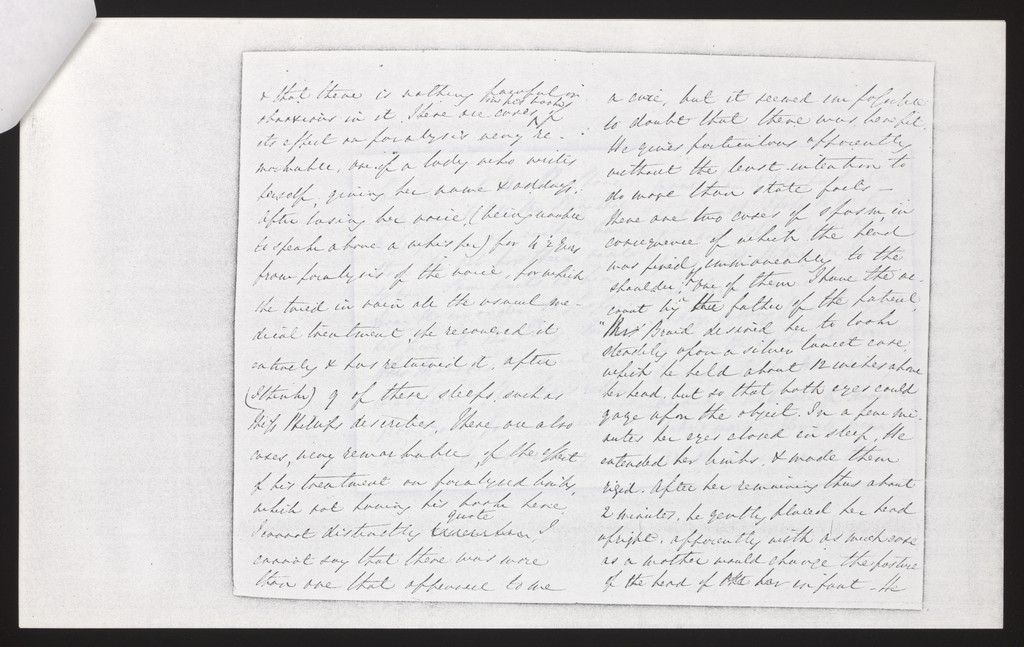 & that there is nothing painful or
in his book
obnoxious in it. There are cases of
its effect on paralysis very re-
markable, one of a lady who writes
herself, giving her name & address.
After losing her voice, (being unable
to speak above a whisper) for 4½ years
from paralysis of the voice, for which
she tried in vain all the usual me-
dical treatment, she recovered it
entirely & has retained it, after
(I think) 9 of these sleeps, such as
Miss Philips describes. There are also
cases, very remarkable, of the effect
of his treatment on paralysed limbs,
which not having his book here
quote
I cannot distinctly I
cannot say that there was more
than one that appeared to me
a cure, but it seemed impossible
to doubt that there was benefit.
He gives particulars apparently
without the least intention to
do more than state facts —
there are two cases of spasm in
consequence of which the head
was fixed immoveably to the
shoulder, of one of them I have the ac-
count by the father of the patient
"Mr Braid desired her to look
steadily upon a silver lancet case
which he held about 12 inches above
her head, but so that both eyes could
gaze upon the object. In a few mi-
nutes her eyes closed in sleep. He
extended her limbs, & made them
rigid. After her remaining thus about
2 minutes, he gently placed her head
upright, apparently with as much care
as a mother would change the posture
of the head of her infant — He